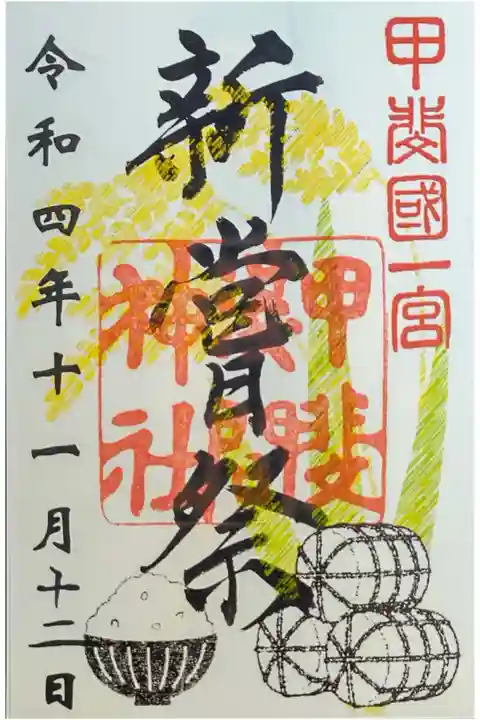 甲斐國一宮
新嘗祭
甲斐
間
神社
令和四年十一月十二日